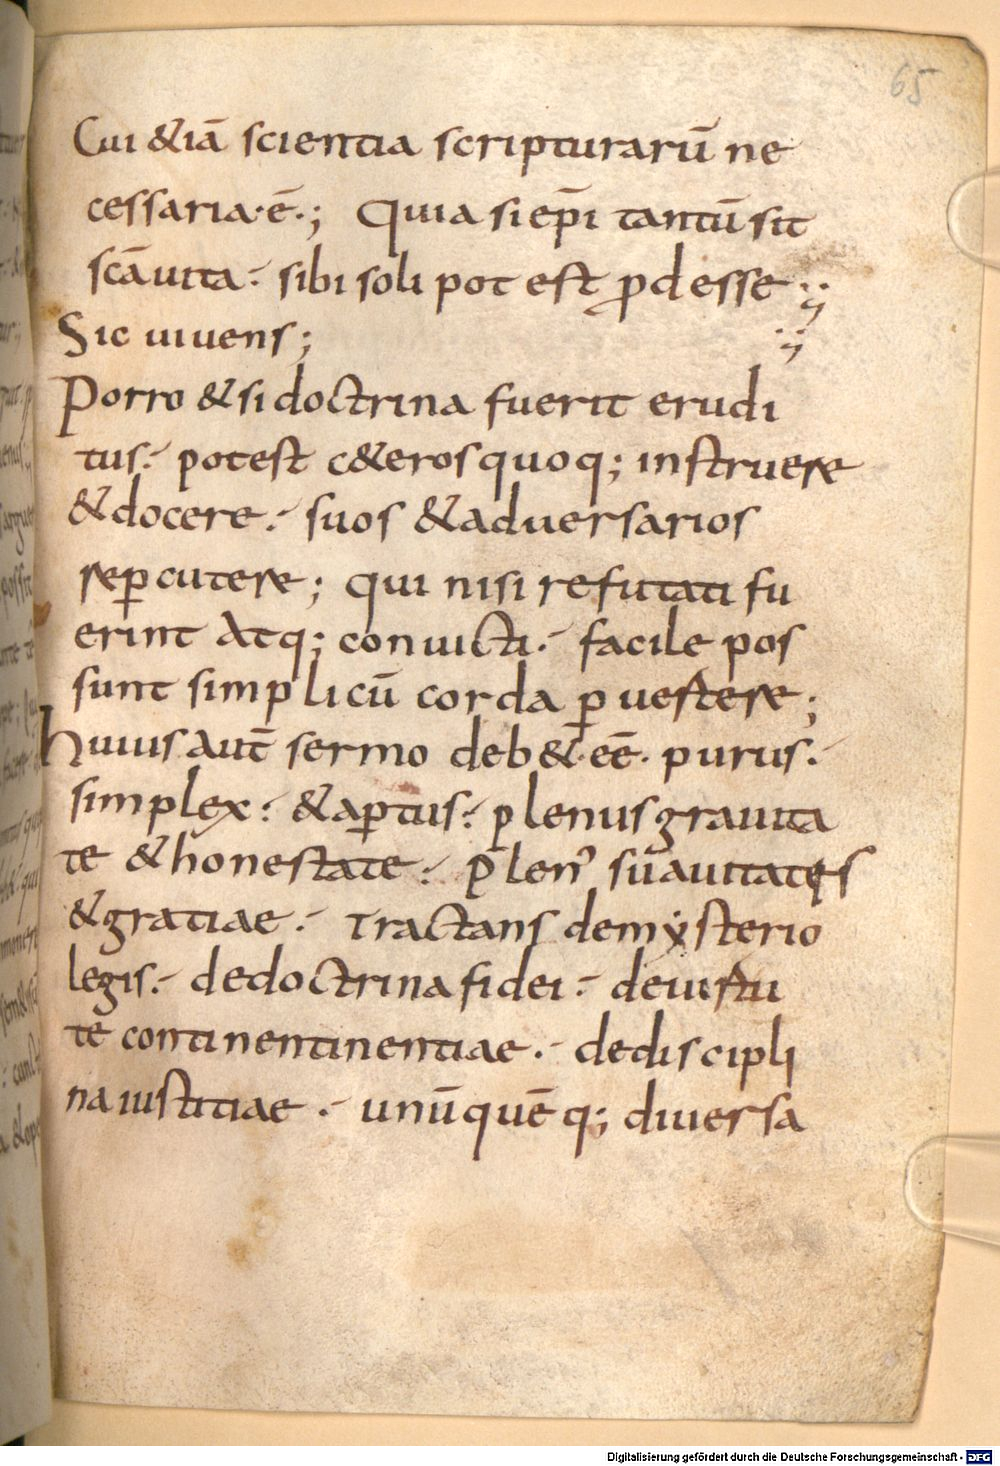 65
Cui &iā scientia scripturarū ne
cessaria·ē·; Quia si ep̄i tantū sit
scā uita·́ sibi soli pot est ꝓdesse ·;
Sic uiuens; ·;
Porro & si doctrina fuerit erudi
tus·́ potest c&eros quoq; instruere
& docere·́ suos & aduersarios
reꝑcutere; qui nisi refutati fu
erint Atq; conuicti·́ facile pos
sunt simplicū corda ꝑuertere;
huius aut̄ sermo deb& eē· purus·́
simplex·́ & aꝑtus·́ plenus grauita
te & honestate·́ plen᾿ suauitatęs
& gratiae·́ Tractans de mẏsterio
legis·́ de doctrina fidei·́ de uirtu
te continentinentiae·́ de discipli
na iustitiae·́ unū quēq; diuersa
Digitalisierung gefördert durch die Deutsche Forschungsgemeinschaft - DFG